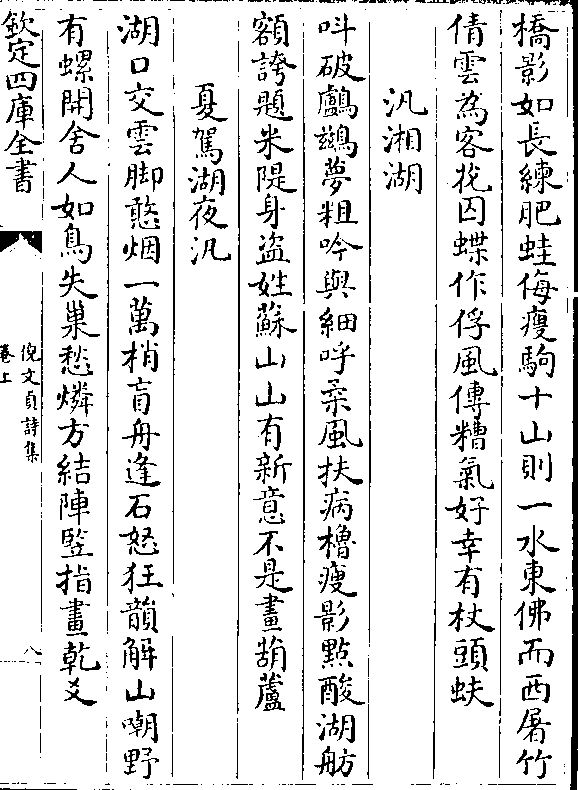 橋影如長練肥蛙侮瘦駒十山則一水東佛而西屠竹
倩雲為客花囚蝶作俘風傳糟氣好幸有杖頭蚨
汎湘湖
呌破鸕鷀夢粗吟與細呼柔風扶病櫓瘦影㸃酸湖舫
額誇題米隄身盜姓蘇山山有新意不是畫葫蘆
夏駕湖夜汎
湖口交雲脚憨烟一萬梢盲舟逢石怒狂韻解山嘲野
有螺開舍人如鳥失巢愁燐方結陣竪指畫乾爻
欽定四庫全書
倪文貞詩集
卷上
八